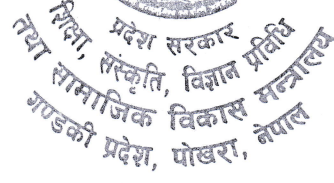 प्रदेश सरकार
शिक्षा, संस्कृति, विज्ञान प्रविधि
तथा सामाजिक विकास मन्त्रालय
गण्डकी प्रदेश, पोखरा, नेपाल